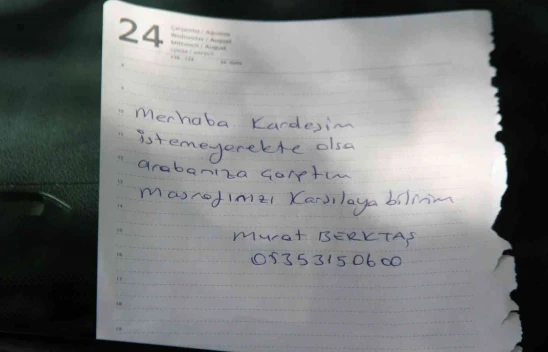 24
Çarşamba / Ağustos
Wednesday / August
Mittwoch / August
Merhaba Kardeşim
istemeyerekte olsa
arabanıza çarptım
masrafınızı Karşılaya bilirim
Murat BERKTAŞ
05353150600